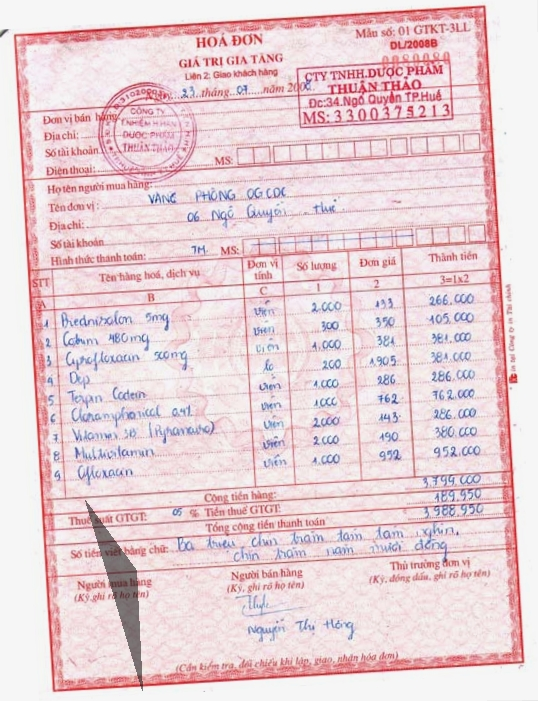 HOÁ ĐƠN
GIÁ TRỊ GIA TĂNG
Liên 2: Giao khách hàng
Mẫu số: 01 GTKT-3LL
DL/2008B
0080080
23 tháng 07 năm 200
CTY TNHH.DƯỢC PHẨM
THUẬN THẢO
Đc:34.Ngô Quyền TP.Huế
MS: 3300375213
CÔNG TY
TNHIỆM H.HẠN
DƯỢC PHẨM
THUẬN THẢO
Đơn vị bán hàng:
Địa chỉ:
Số tài khoản
Điện thoại: MS:
Họ tên người mua hàng:
Tên đơn vị: VĂNG PHÒNG OGCDC
Địa chỉ: 06 Ngô Quyền Huế
Số tài khoản
Hình thức thanh toán: TM. MS:
STT Tên hàng hoá, dịch vụ Đơn vị tính Số lượng Đơn giá Thành tiền
A B C 1 2 3=1x2
1 Prednisolon 5mg viên 2.000 133 266.000
2 480mg viên 300 350 105.000
3 500mg viên 1.000 381 381.000
4 Dep lo 200 1.905 381.000
5 Terpin Codein viên 1.000 286 286.000
6 0,4% viên 1000 762 762.000
7 Vitamin 3B viên 2.000 143 286.000
8 Multivitamin viên 2.000 190 380.000
9 Ofloxacin viên 1.000 952 952.000
Cộng tiền hàng: 3.799.000
Thuế suất GTGT: 05 % Tiền thuế GTGT: 189.950
Tổng cộng tiền thanh toán 3.988.950
Số tiền viết bằng chữ: Ba triệu chín trăm tám tám nghìn,
chín trăm năm mươi đồng
Người mua hàng Người bán hàng Thủ trưởng đơn vị
(Ký, ghi rõ họ tên) (Ký, ghi rõ họ tên) (Ký, đóng dấu, ghi rõ họ tên)
Nguyễn Thị Hồng
(Cần kiểm tra, đối chiếu khi lập, giao, nhận hóa đơn)